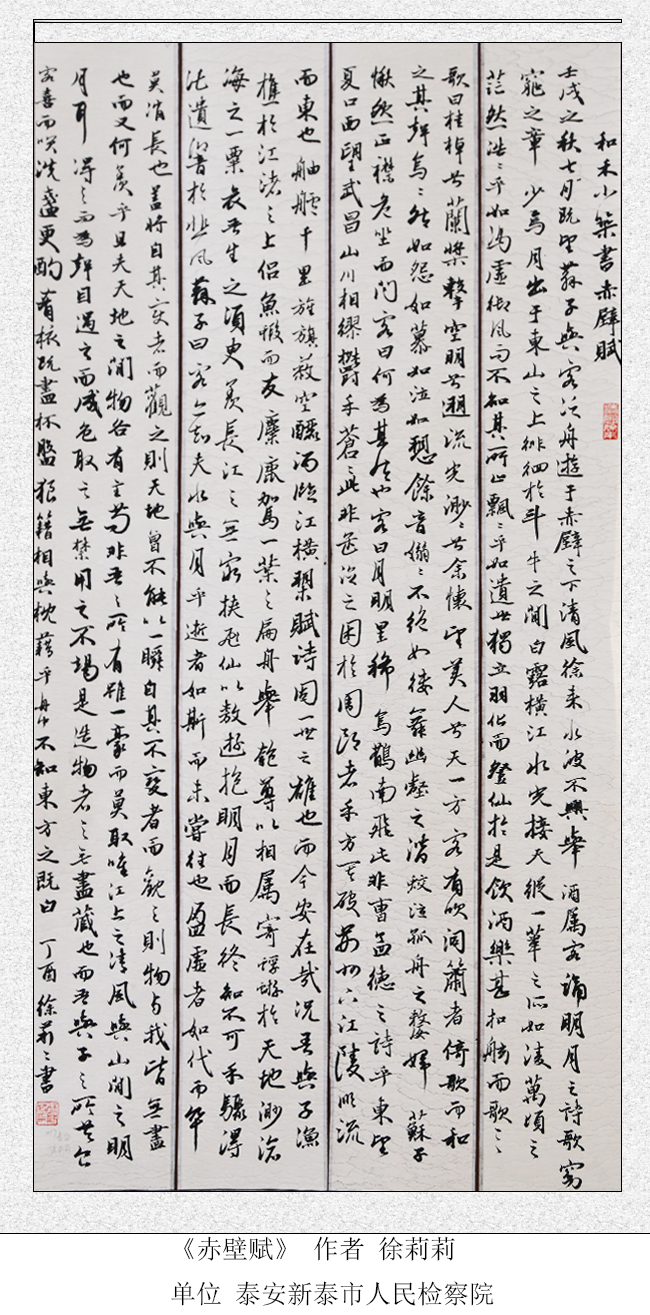 和禾小築書赤壁賦
壬戌之秋七月既望蘇子與客泛舟遊于赤壁之下清風徐來水波不興舉酒属客誦明月之詩歌窈
窕之章少焉月出于東山之上徘徊於斗牛之間白露橫江水光接天縱一葦之所如凌萬頃之
茫然浩〻乎如馮虛御風而不知其所止飄〻乎如遺世獨立羽化而登仙於是飲酒樂甚扣舷而歌之
歌曰桂棹兮蘭槳擊空明兮溯流光渺〻兮余懷望美人兮天一方客有吹洞簫者倚歌而和
之其聲嗚〻然如怨如慕如泣如訴餘音嫋〻不絕如縷舞幽壑之潛蛟泣孤舟之嫠婦蘇子
愀然正襟危坐而問客曰何為其然也客曰月明星稀烏鵲南飛此非曹孟德之詩乎東望
夏口西望武昌山川相繆鬱乎蒼此非孟德之困於周郎者乎方其破荊州下江陵順流
而東也舳艫千里旌旗蔽空釃酒臨江橫槊賦詩固一世之雄也而今安在哉況吾與子漁
樵於江渚之上侶魚蝦而友麋鹿駕一葉之扁舟舉匏尊以相属寄蜉蝣於天地渺滄
海之一粟哀吾生之須臾羨長江之無窮挾飛仙以遨遊抱明月而長終知不可乎驟得
託遺響於悲風蘇子曰客亦知夫水與月乎逝者如斯而未嘗往也盈虛者如代而卒
莫消長也蓋將自其變者而觀之則天地曾不能以一瞬自其不變者而觀之則物与我皆無盡
也而又何羨乎且夫天地之間物各有主苟非吾之所有雖一毫而莫取唯江上之清風與山間之明
月耳得之而為聲目遇之而成色取之無禁用之不竭是造物者之無盡藏也而吾與子之所共食
客喜而笑洗盞更酌肴核既盡杯盤狼籍相與枕藉乎舟中不知東方之既白 丁酉徐莉〻書
《赤壁赋》 作者 徐莉莉
单位 泰安新泰市人民检察院